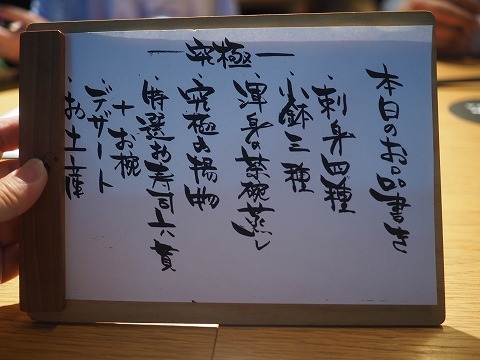 本日のお品書き
―究極―
・刺身四種
・小鉢三種
・渾身の茶碗蒸し
・究極の揚物
・特選お寿司六貫
+お椀
・デザート
・お土産